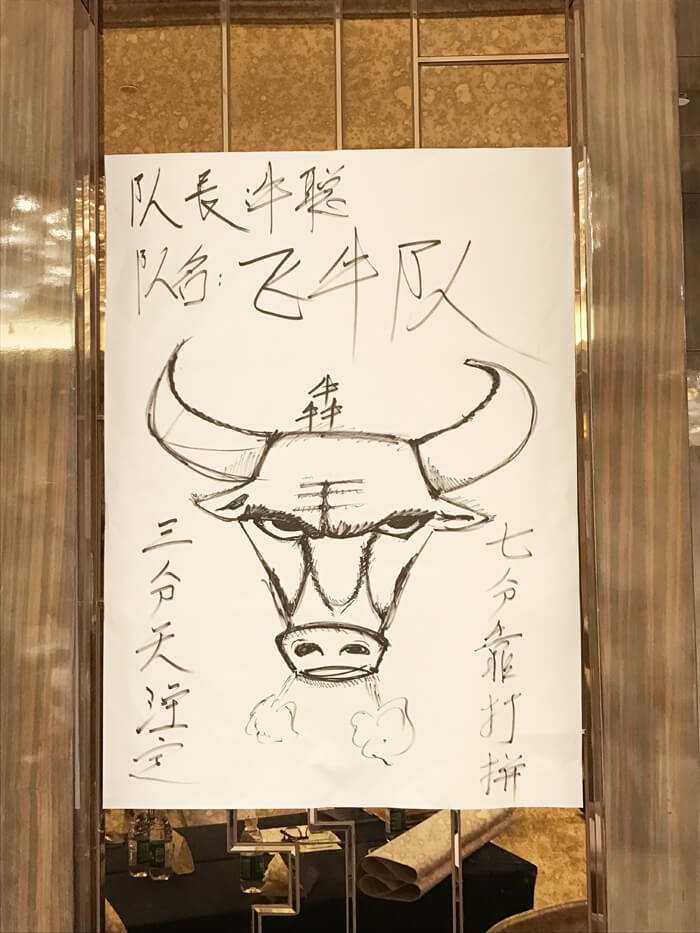 队長许聪
队名：飞牛队
犇
王
三分天注定
七分靠打拼